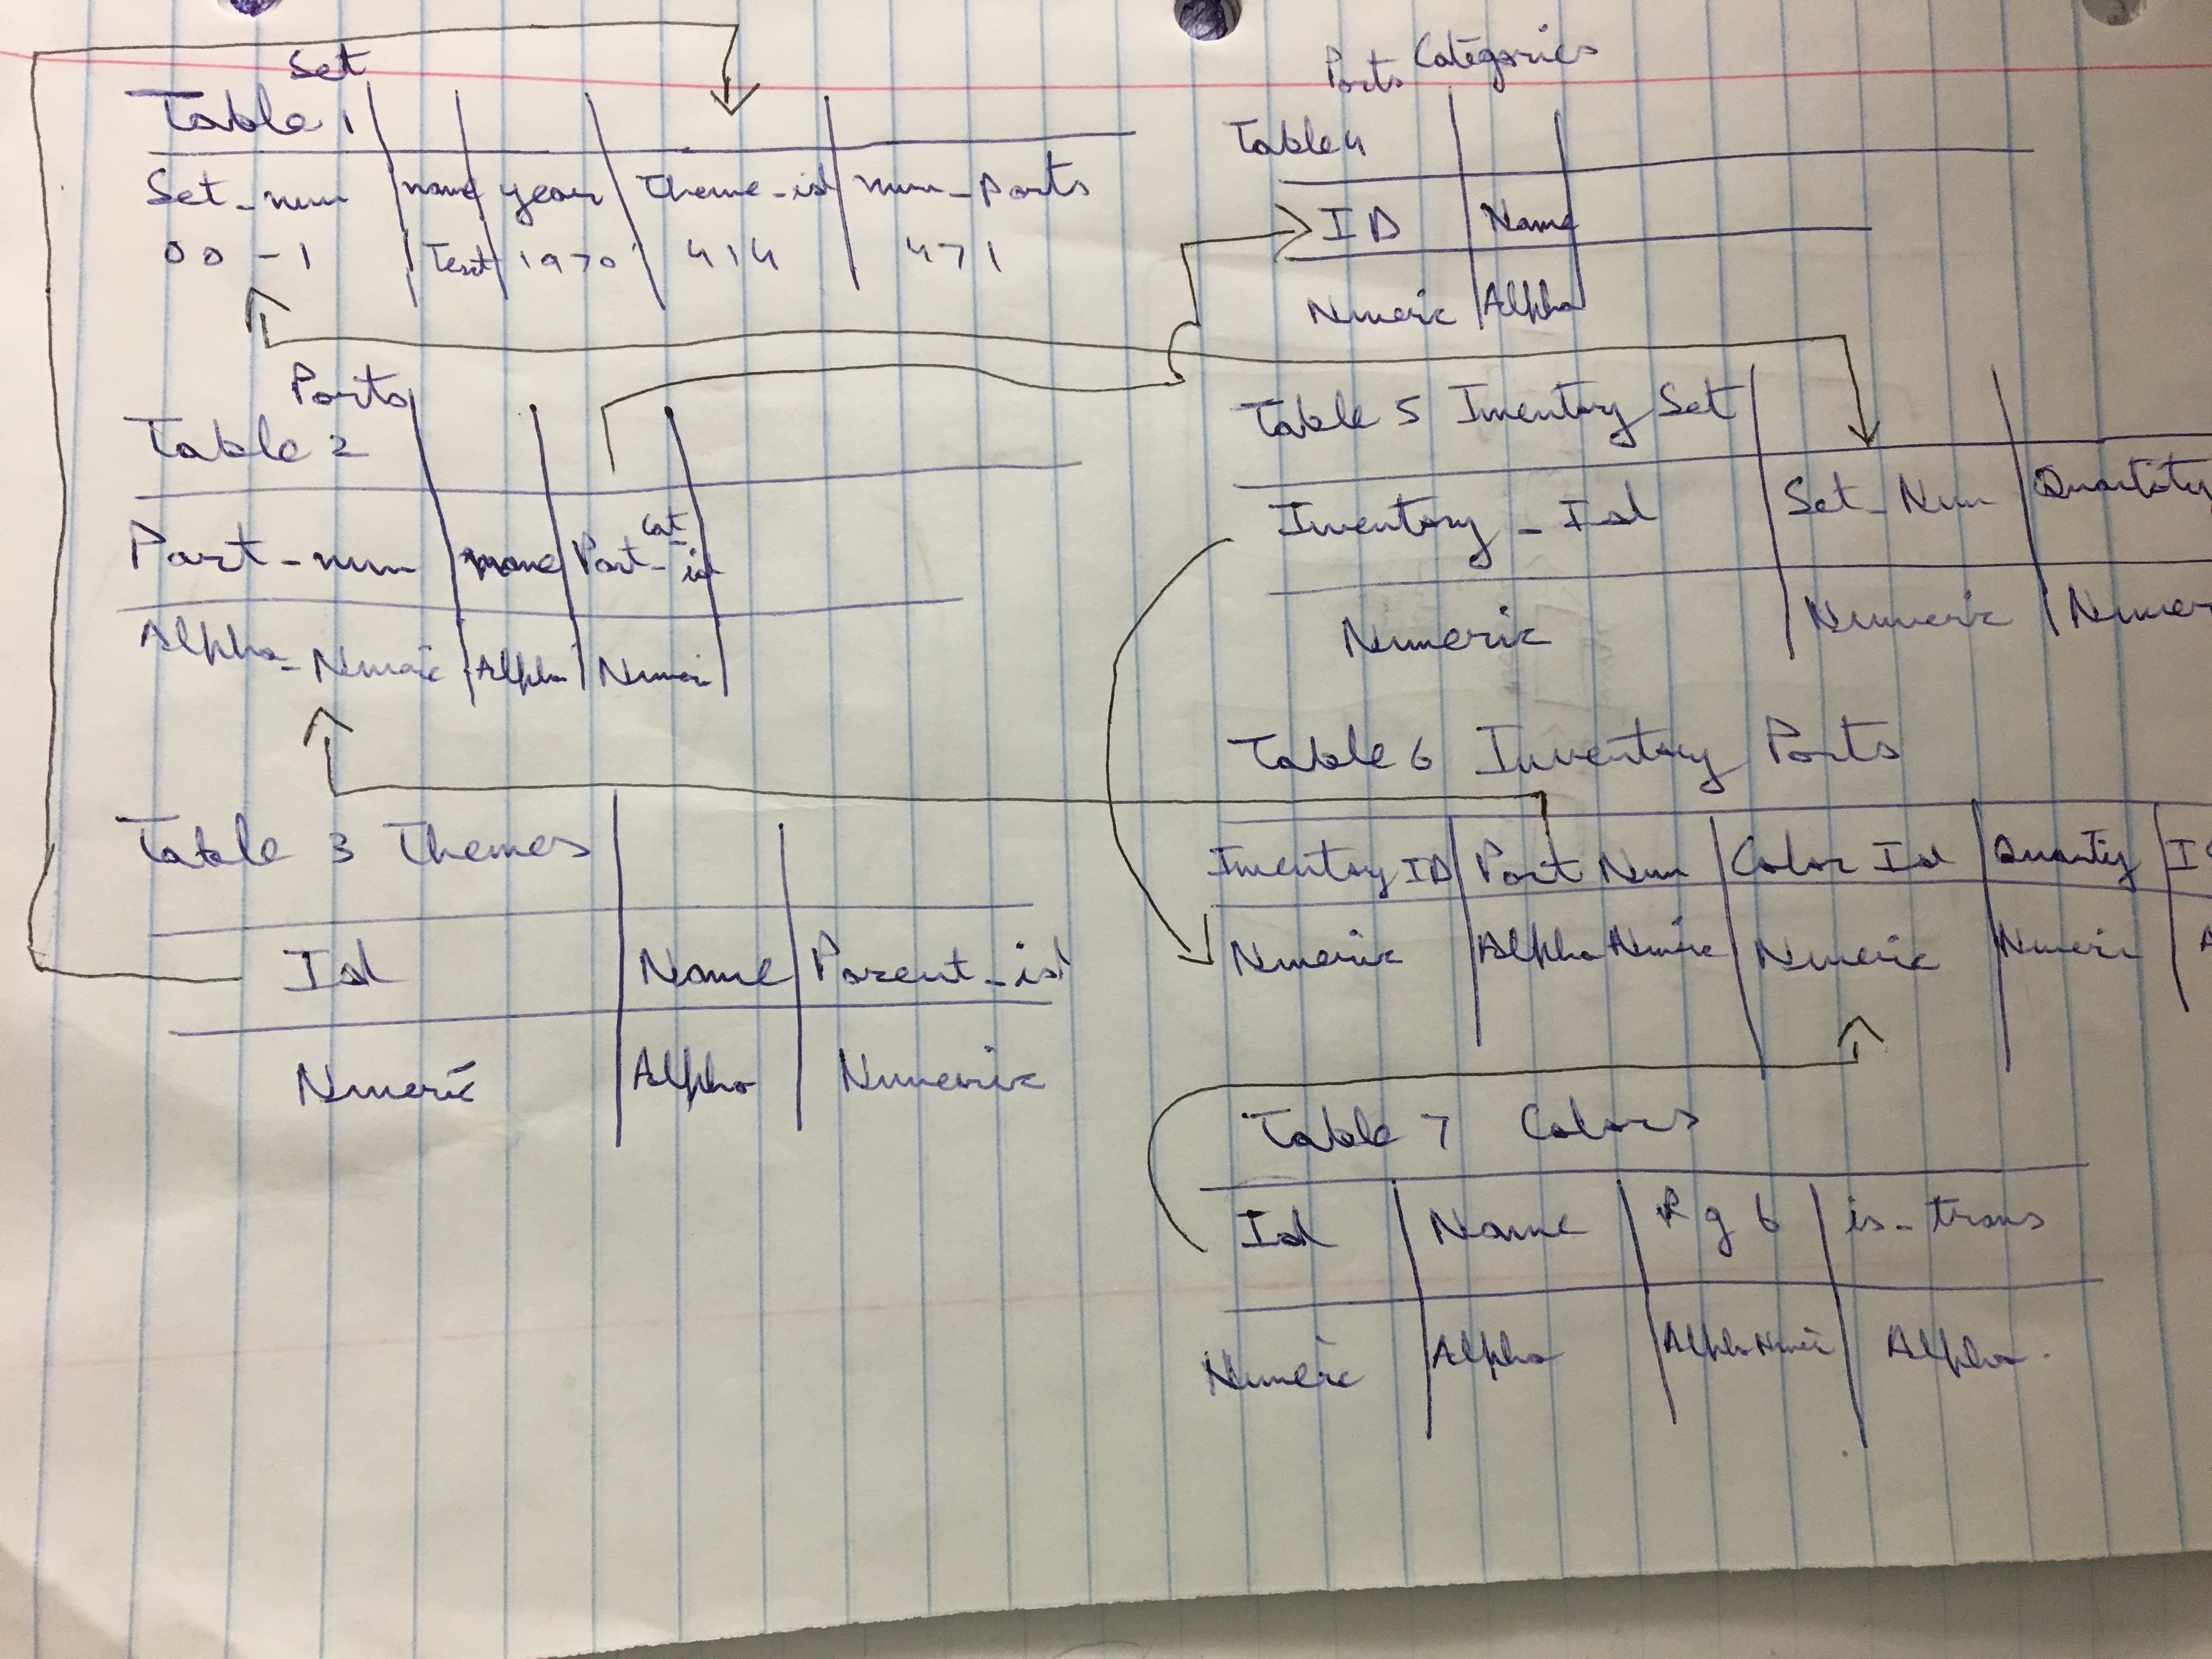 Set
Table 1
Set_num name year Theme_id num_parts
00-1 Text 1970 414 471
Parts
Table 2
Part-num name Part_Cat_id
Alpha-Numeric Alpha Numeri
Table 3 Themes
Id Name Parent_id
Numeric Alpha Numeric
Parts Categories
Table 4
ID Name
Numeric Alpha
Table 5 Inventory Set
Inventory_Id Set_Num Quantity
Numeric Numeric Numer
Table 6 Inventory Parts
Inventory ID Part Num Color Id Quantity I
Numeric Alpha Numeric Numeric Numeri A
Table 7 Colors
Id Name Rgb is_trans
Numeric Alpha Alpha Numeri Alpha